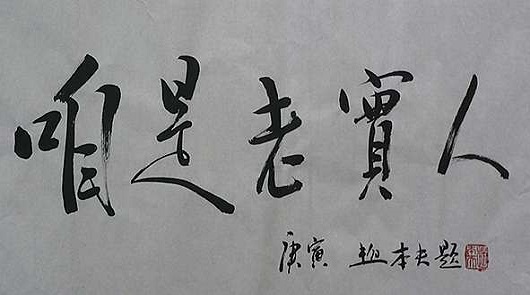 咱是老實人
庚寅 趙本夫題